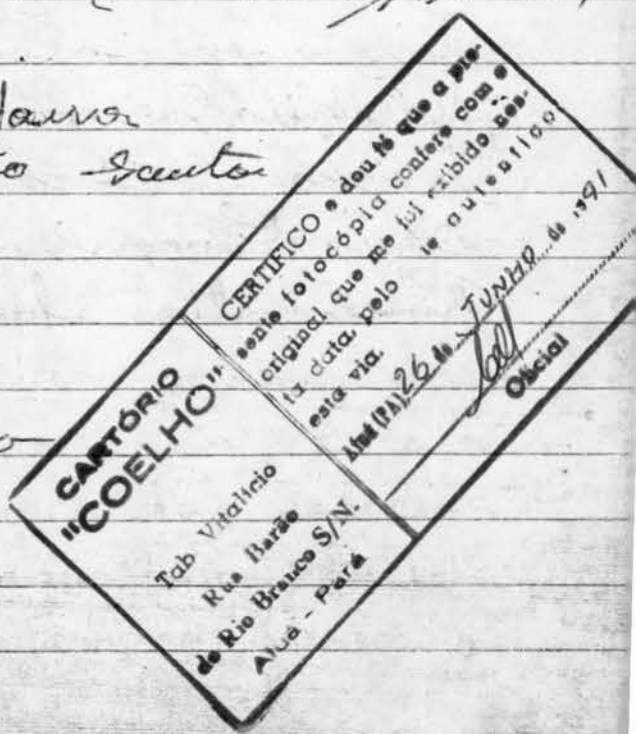 Santos
CARTÓRIO
"COELHO"
Tab Vitalício
Rua Barão
do Rio Branco S/N.
Afuá - Pará
CERTIFICO e dou fé que a pre-
sente fotocópia confere com o
original que me foi exibido nes-
ta data, pelo te autentico
esta via.
Afuá (PA) 26 de JUNHO de 1991
Oficial